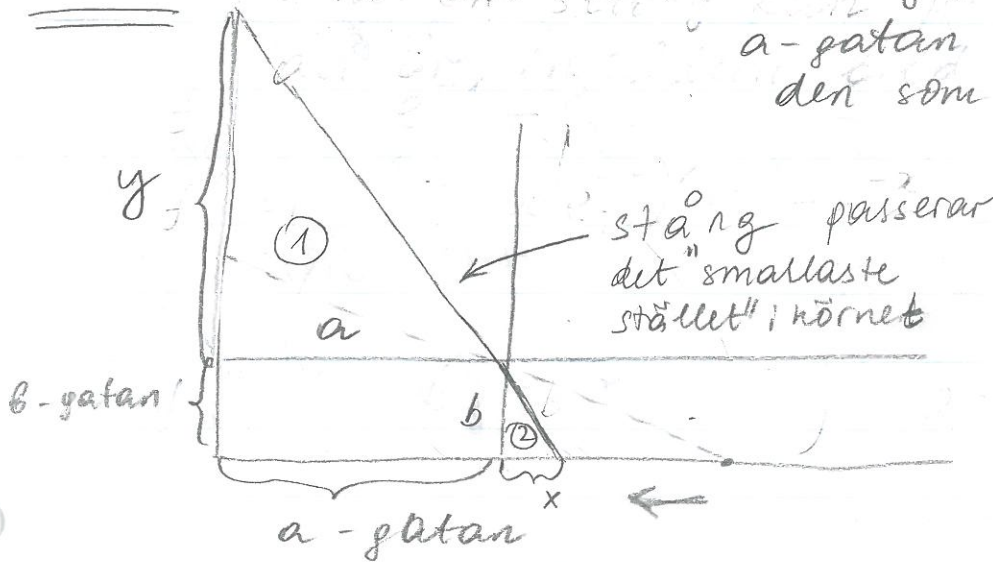 a-gatan
den som
y
①
stång passerar
det "smallaste
stället" i hörnet
a
b-gatan
b
②
x
a-gatan